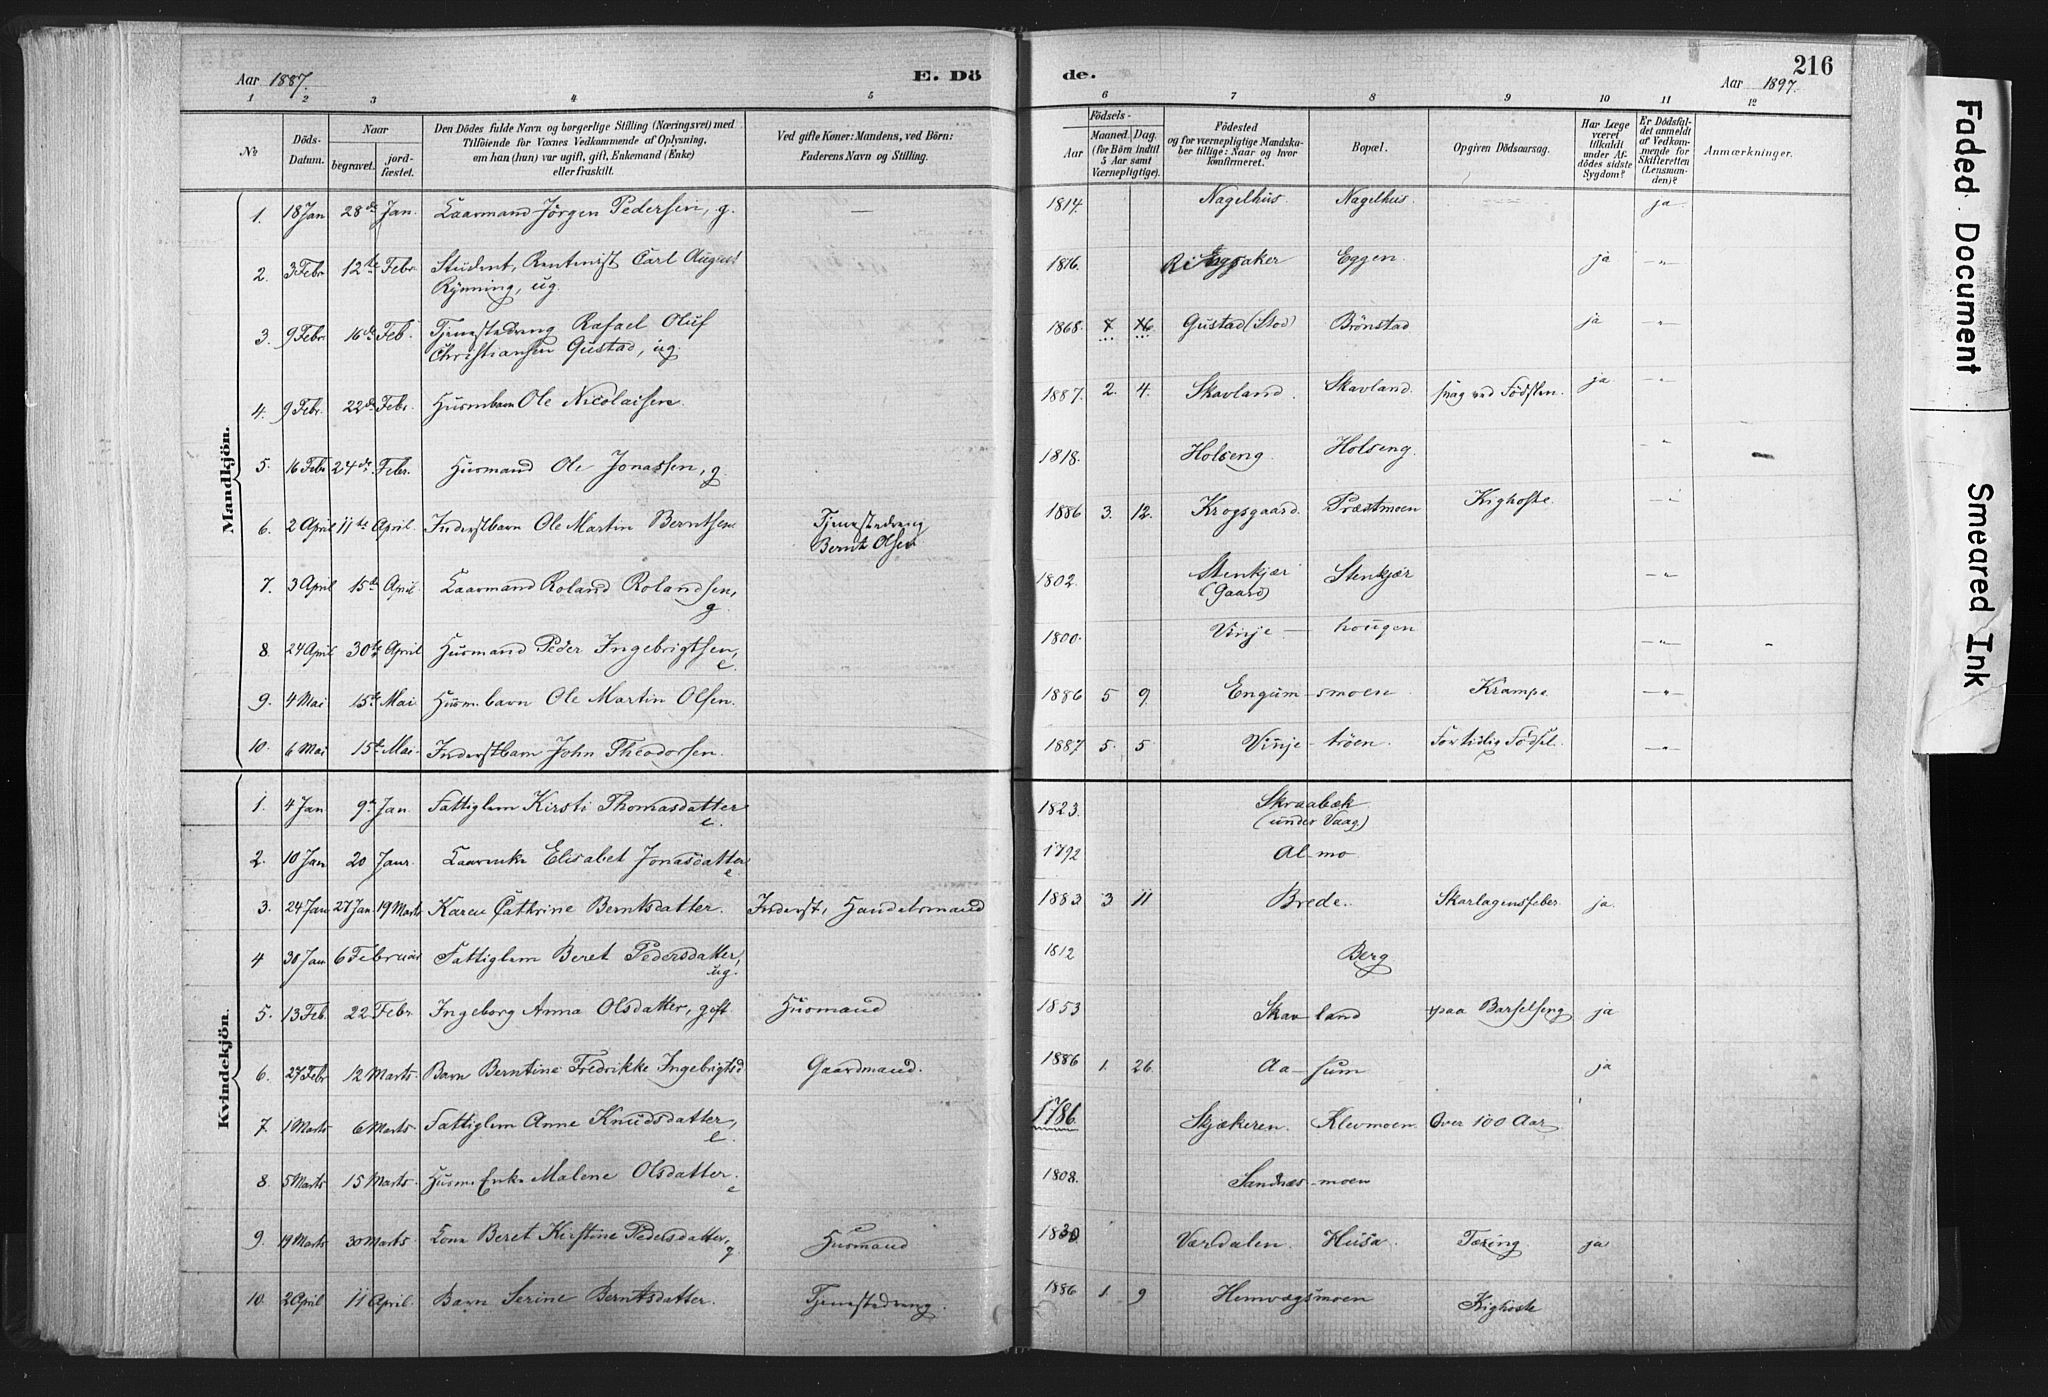 Aar 1887.
E. Dö
de.
Aar 1897.
216
1 2 3 4 5 6 7 8 9 10 11 12
No
Döds-Datum.
Naar
begravet.
jord-fæstet.
Den Dödes fulde Navn og borgerlige Stilling (Næringsvei) med
Tilföiende for Voxnes Vedkommende af Oplysning,
om han (hun) var ugift, gift, Enkemand (Enke)
eller fraskilt.
Ved gifte Koner: Mandens, ved Börn:
Faderens Navn og Stilling.
Födsels-
Aar
Maaned. Dag.
(for Börn indtil
5 Aar samt
Værnepligtige).
Födested
og for værnepligtige Mandska-
ber tillige: Naar og hvor
konfirmeret.
Bopæl.
Opgiven Dödsaarsag.
Har Læge
været
tilkaldt
under Af-
dödes sidste
Sygdom?
Er Dödsfal-
det anmeldt
af Vedkom-
mende for
Skifteretten
(Lensman-
den)?
Anmærkninger.
Mandkjön.
1. 18 Jan 28de Jan. Gaarmand Jörgen Pedersen, g. — 1814. Nagelhus Nagelhus ja
2. 3 Febr 12te Febr Student, Rentenist Carl August 1816. Eggen. ja -"-
Rynning, ug.
3. 9 Febr 16de Feb. Tjenestedreng Rafael Oluf 1868. Gustad (Stod) Brönstad ja -"-
Christiansen Gustad, ug.
4. 9 Febr. 22de Febr. Husmbarn Ole Nicolaisen 1887. 2. 4. Skavland. Skavland. ja -"-
5. 16 Feb 24de Febr. Husmand Ole Jonassen, g 1818. Holseng Holseng. -"-
6. 2 April 11te April. Inderstbarn Ole Martin Berntsen Tjenestedreng 1886 3. 12. Krogsgaard. Præstmoen Kighoste. -"-
Bernt Olsen
7. 3 April 15te April. Gaarmand Roland Rolandsen, 1802. Stenkjær Stenkjær -"-
g. (Gaard)
8. 24 April 30te April Husmand Peder Ingebrigtsen, 1800. Vinje — hougen -"-
e.
9. 4 Mai 15te Mai Husm. barn Ole Martin Olsen. 1886 5 9. Engum - smoen. Krampe. -"-
10. 6 Mai 15te Mai Inderstbarn John Theodorsen. 1887 5. 5 Vinje - tröen. For tidlig Födsel. -"-
Kvindekjön.
1. 4 Jan 9de Jan. Fattiglem Kirsti Thomasdatter 1823. Skraabæk
e. (under Vaag)
2. 10 Jan 20 Janr. Elisabet Jonasdatter 1792 Al-mo
e
3. 24 Jan 27 Jan. 19 Marts Karen Cathrine Berntsdatter. Inderst, Handelsmand 1883 3 11 Brede. Skarlagensfeber ja.
4 30 Jan 6 Februar Fattiglem Beret Pedersdatter, 1812 Berg
ug.
5. 13 Feb. 22 Febr. Ingeborg Anna Olsdatter, gift Husmand 1853 Skav-land paa Barselseng ja
6. 27 Febr 12 Marts. Barn Berntine Fredrikke Ingebrigtsd Gaardmand. 1886 1. 26. Aa-sum ja
7. 1 Marts 6 Marts. Fattiglem Anne Knudsdatter, 1786. Skjækeren. Klevmoen. Over 100 Aar
e.
8. 5 Marts 15 Marts. Husm. Enke Malene Olsdatter. 1808. Sandnæs-moen
e
9. 19 Marts 30 Marts. Kone Beret Kirstine Pedersdatter, Husmand 1830. Værdalen. Husa Tæring. ja
g.
10. 2 April 11 April. Barn Serine Berntsdatter. Tjenestedreng. 1886 1. 9 Kighoste
Faded Document
Smeared Ink